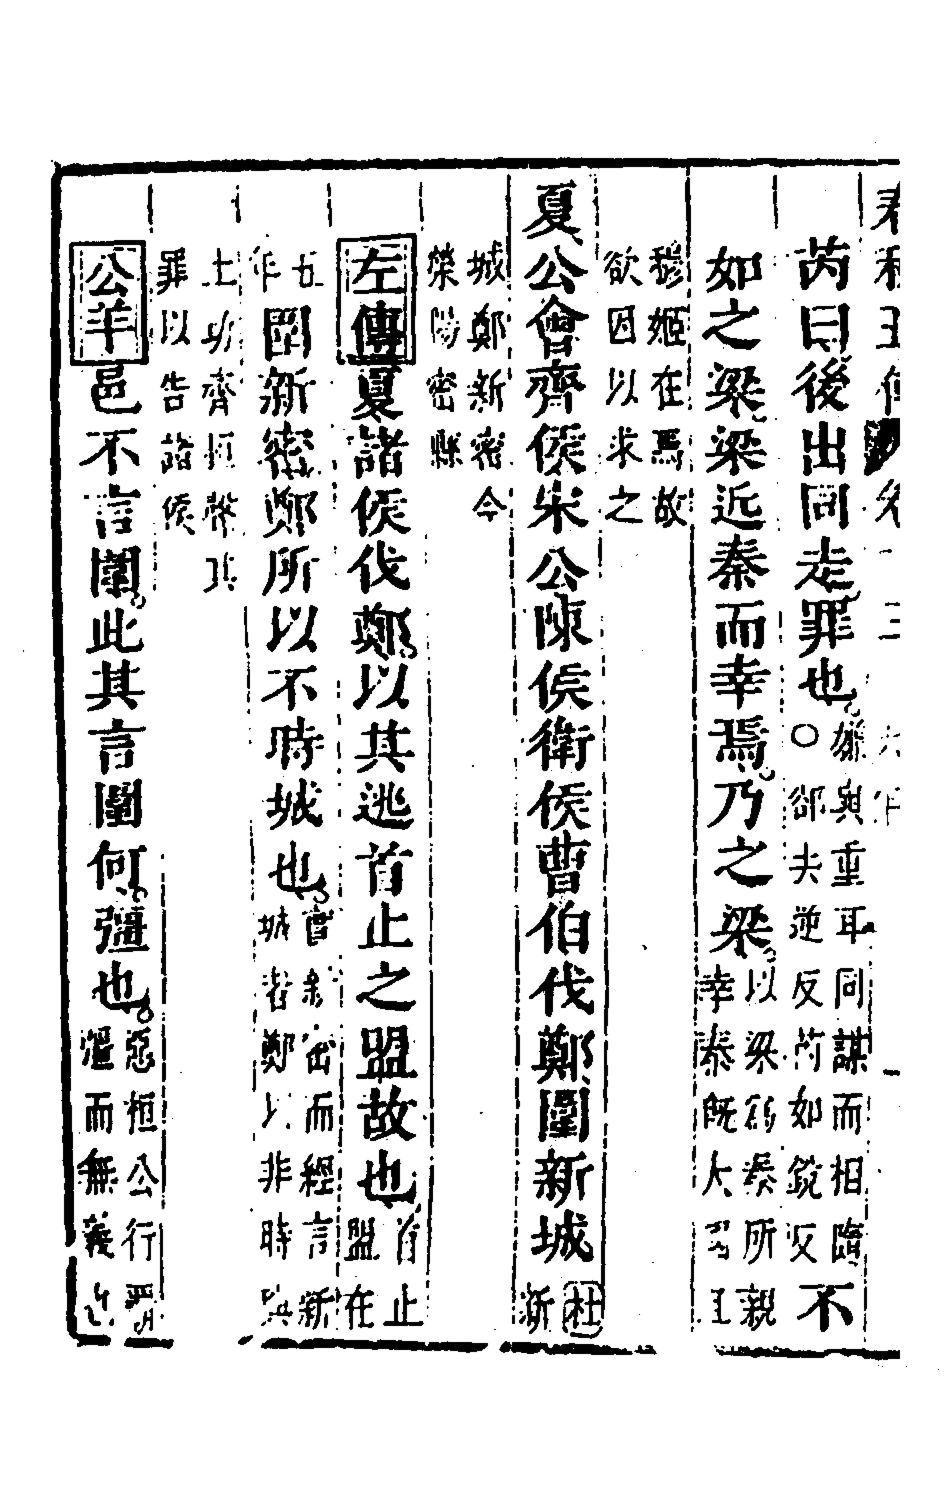 芮曰後出同走罪也○嫌與重耳同謀而相隨郤去逆反芮如銳反不
如之梁梁近秦而幸焉乃之梁以梁爲秦所親幸秦既大
穆姬在焉故欲因以求之
夏公會齊侯宋公陳侯衛侯曹伯伐鄭圍新城杜新
城鄭新密今滎陽密縣
左傳夏諸侯伐鄭以其逃首止之盟故也首止盟在
五年圍新密鄭所以不時城也實新密而經言新城者鄭以非時興
土功齊桓聲其罪以告諸侯
公羊邑不言圍此其言圍何彊也惡桓公行霸彊而無義也